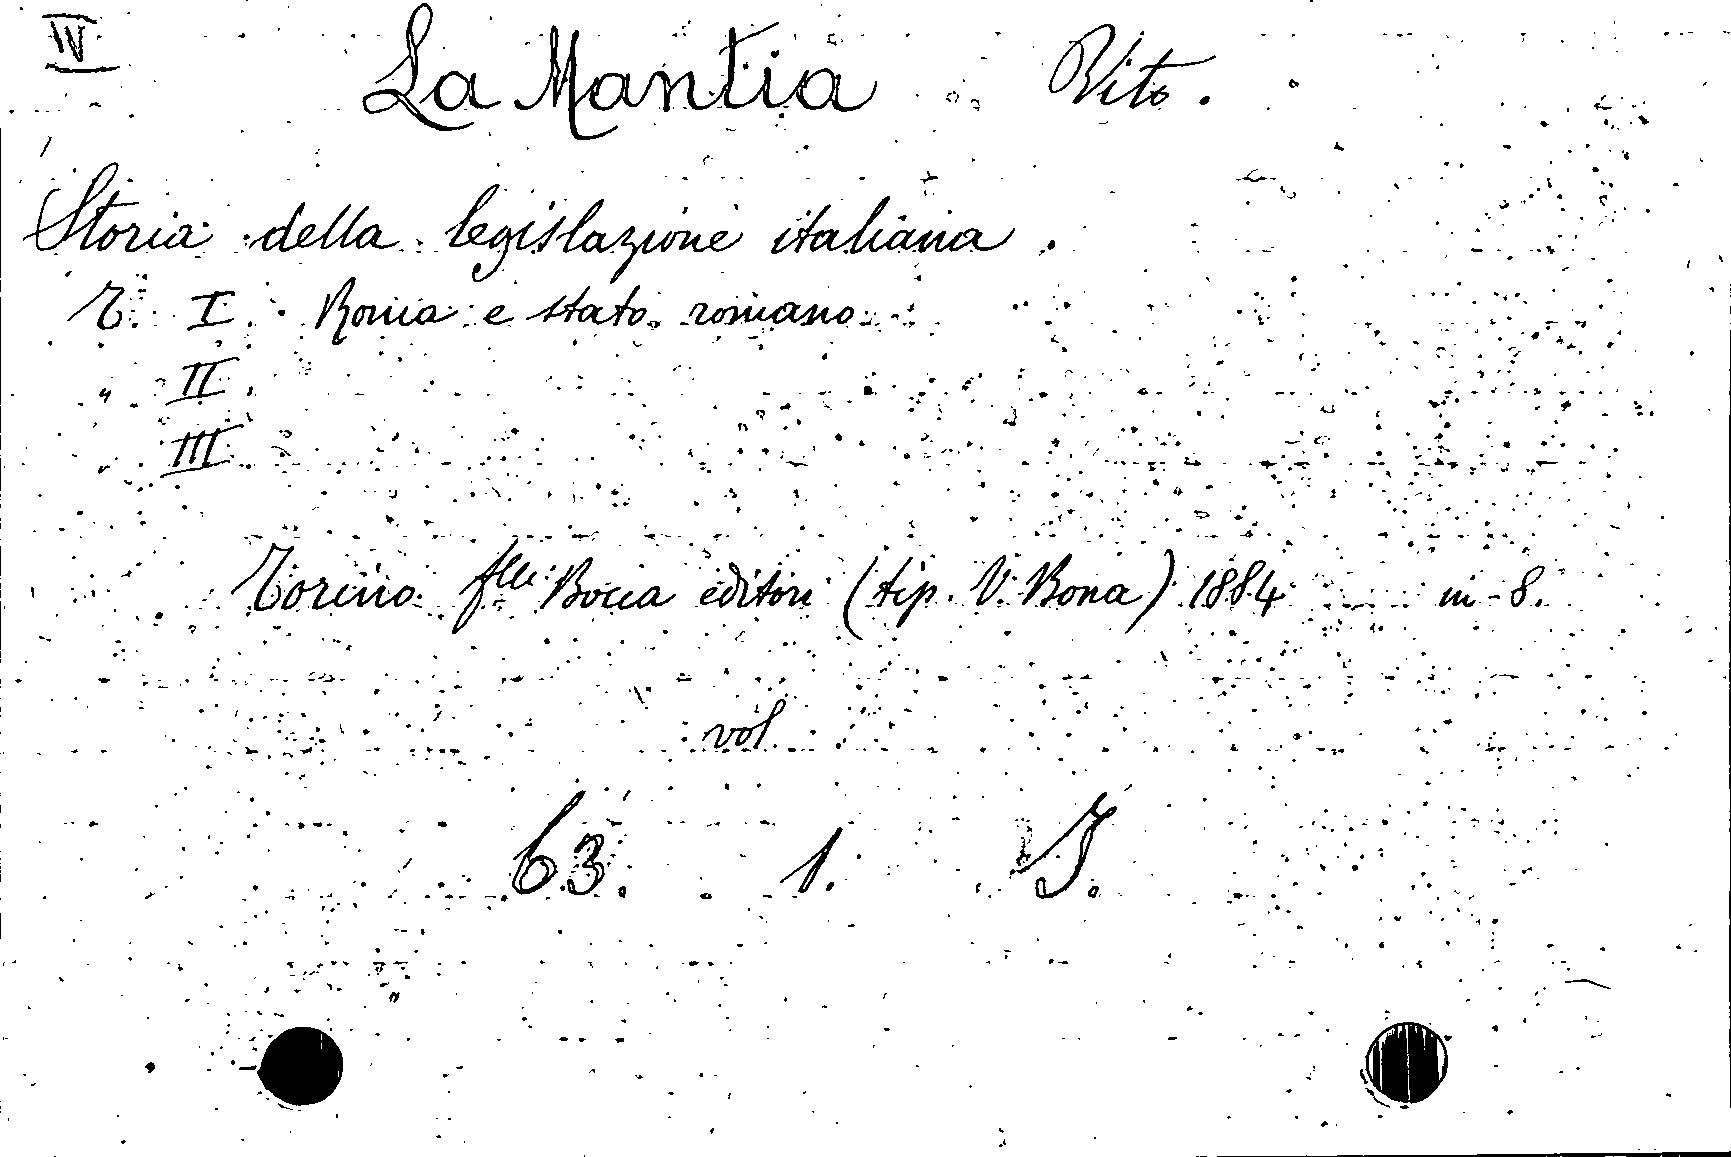 IV
La Mantia Vito.
Storia della legislazione italiana.
T. I. Roma e stato romano
" II.
" III.
Torino flli Bocca editori (tip. V. Bona) 1884 in-8.
vol
63. 1. I.